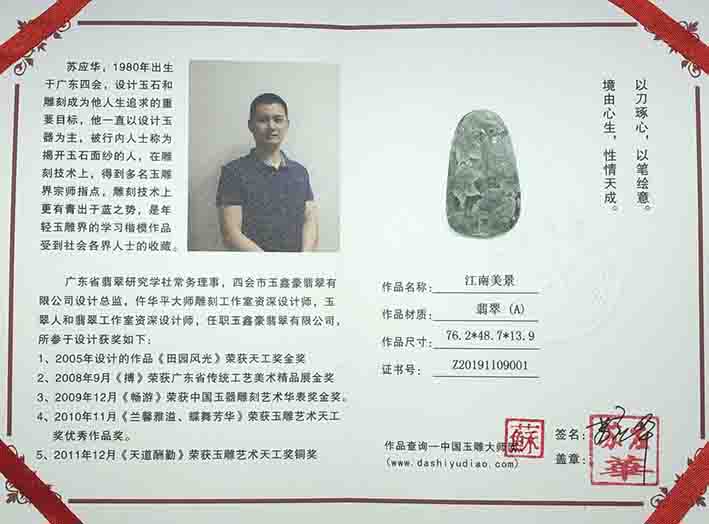 苏应华，1980年出生
于广东四会，设计玉石和
雕刻成为他人生追求的重
要目标，他一直以设计玉
器为主，被行内人士称为
揭开玉石面纱的人，在雕
刻技术上，得到多名玉雕
界宗师指点，雕刻技术上
更有青出于蓝之势，是年
轻玉雕界的学习楷模作品
受到社会各界人士的收藏。
广东省翡翠研究学社常务理事，四会市玉鑫豪翡翠有
限公司设计总监，仵华平大师雕刻工作室资深设计师，玉
翠人和翡翠工作室资深设计师，任职玉鑫豪翡翠有限公司，
所参于设计获奖如下：
1、2005年设计的作品《田园风光》荣获天工奖金奖
2、2008年9月《搏》荣获广东省传统工艺美术精品展金奖
3、2009年12月《畅游》荣获中国玉器雕刻艺术华表奖金奖。
4、2010年11月《兰馨雅溢、蝶舞芳华》荣获玉雕艺术天工
奖优秀作品奖。
5、2011年12月《天道酬勤》荣获玉雕艺术天工奖铜奖
以刀琢心，以笔绘意。
境由心生，性情天成。
作品名称：江南美景
作品材质：翡翠 (A)
作品尺寸：76.2*48.7*13.9
证书号：Z20191109001
作品查询—中国玉雕大师
(www.dashiyudiao.com)
蘇
签名：
盖章：
華